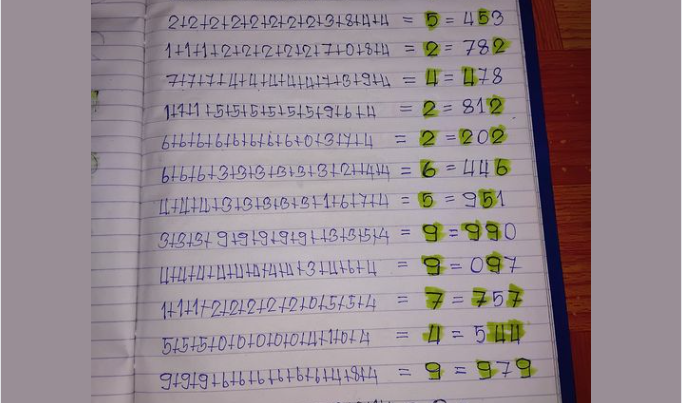 2+2+2+2+2+2+2+2+3+8+4+4 = 5 = 453
1+1+1+2+2+2+2+2+7+0+8+4 = 2 = 782
7+7+7+4+4+4+4+4+7+3+9+4 = 4 = 478
1+1+1+5+5+5+5+5+5+9+6+4 = 2 = 812
6+6+6+6+6+6+6+6+0+3+7+4 = 2 = 202
6+6+6+3+3+3+3+3+3+2+4+4 = 6 = 446
4+4+4+3+3+3+3+3+1+6+7+4 = 5 = 951
3+3+3+9+9+9+9+9+3+3+5+4 = 9 = 990
4+4+4+4+4+4+4+4+3+4+6+4 = 9 = 097
1+1+1+2+2+2+2+2+0+5+5+4 = 7 = 757
5+5+5+0+0+0+0+0+4+1+0+4 = 4 = 544
9+9+9+6+6+6+6+6+6+4+8+4 = 9 = 979